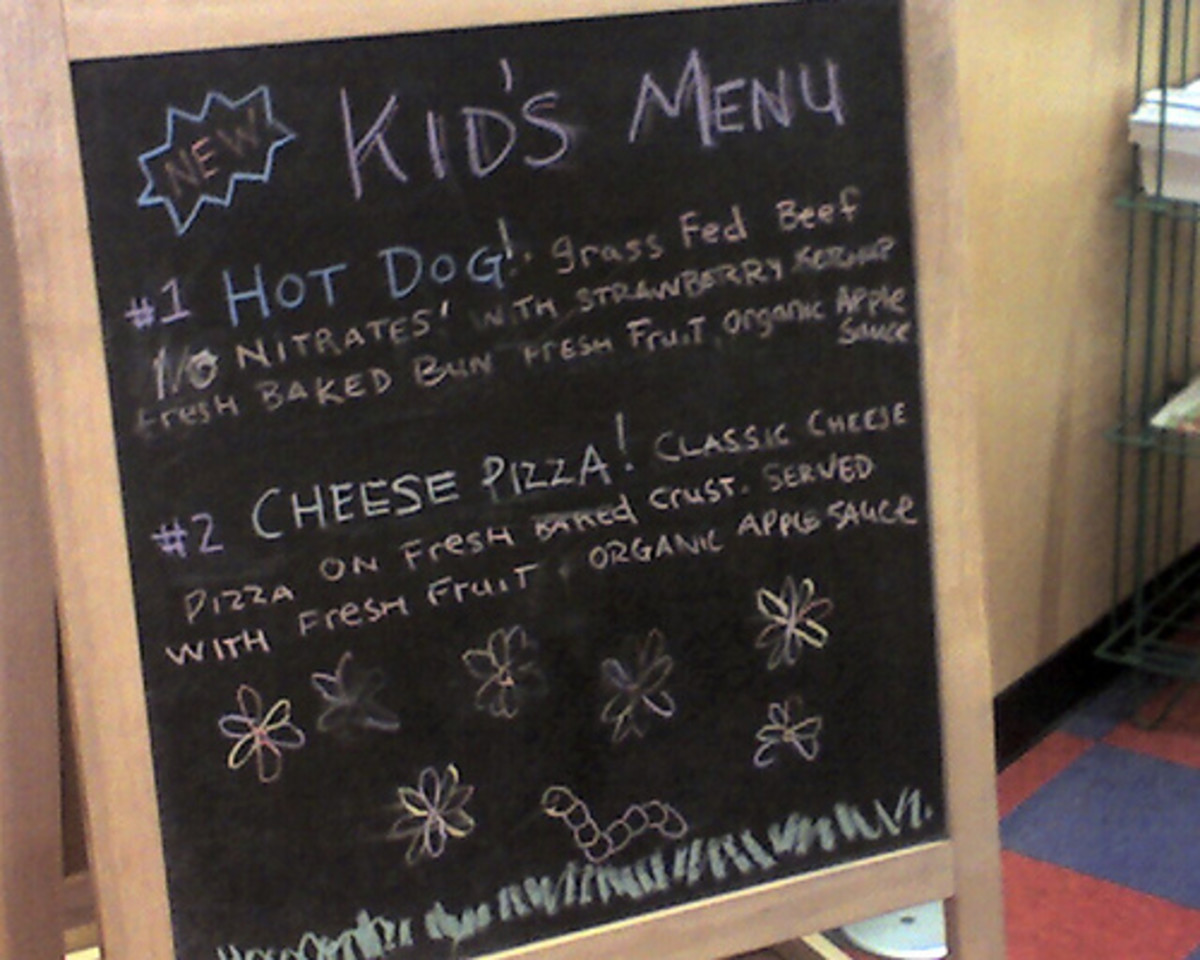 NEW KID'S MENU
#1 HOT DOG! grass Fed Beef
NO NITRATES! WITH STRAWBERRY KETCHUP
Fresh BAKED BUN FRESH FruiT, Organic Apple
Sauce
#2 CHEESE PIZZA! CLASSIC CHEESE
PIZZA ON FresH BAKED Crust. SERVED
WITH FresH FruiT ORGANIC APPLE SAUCE